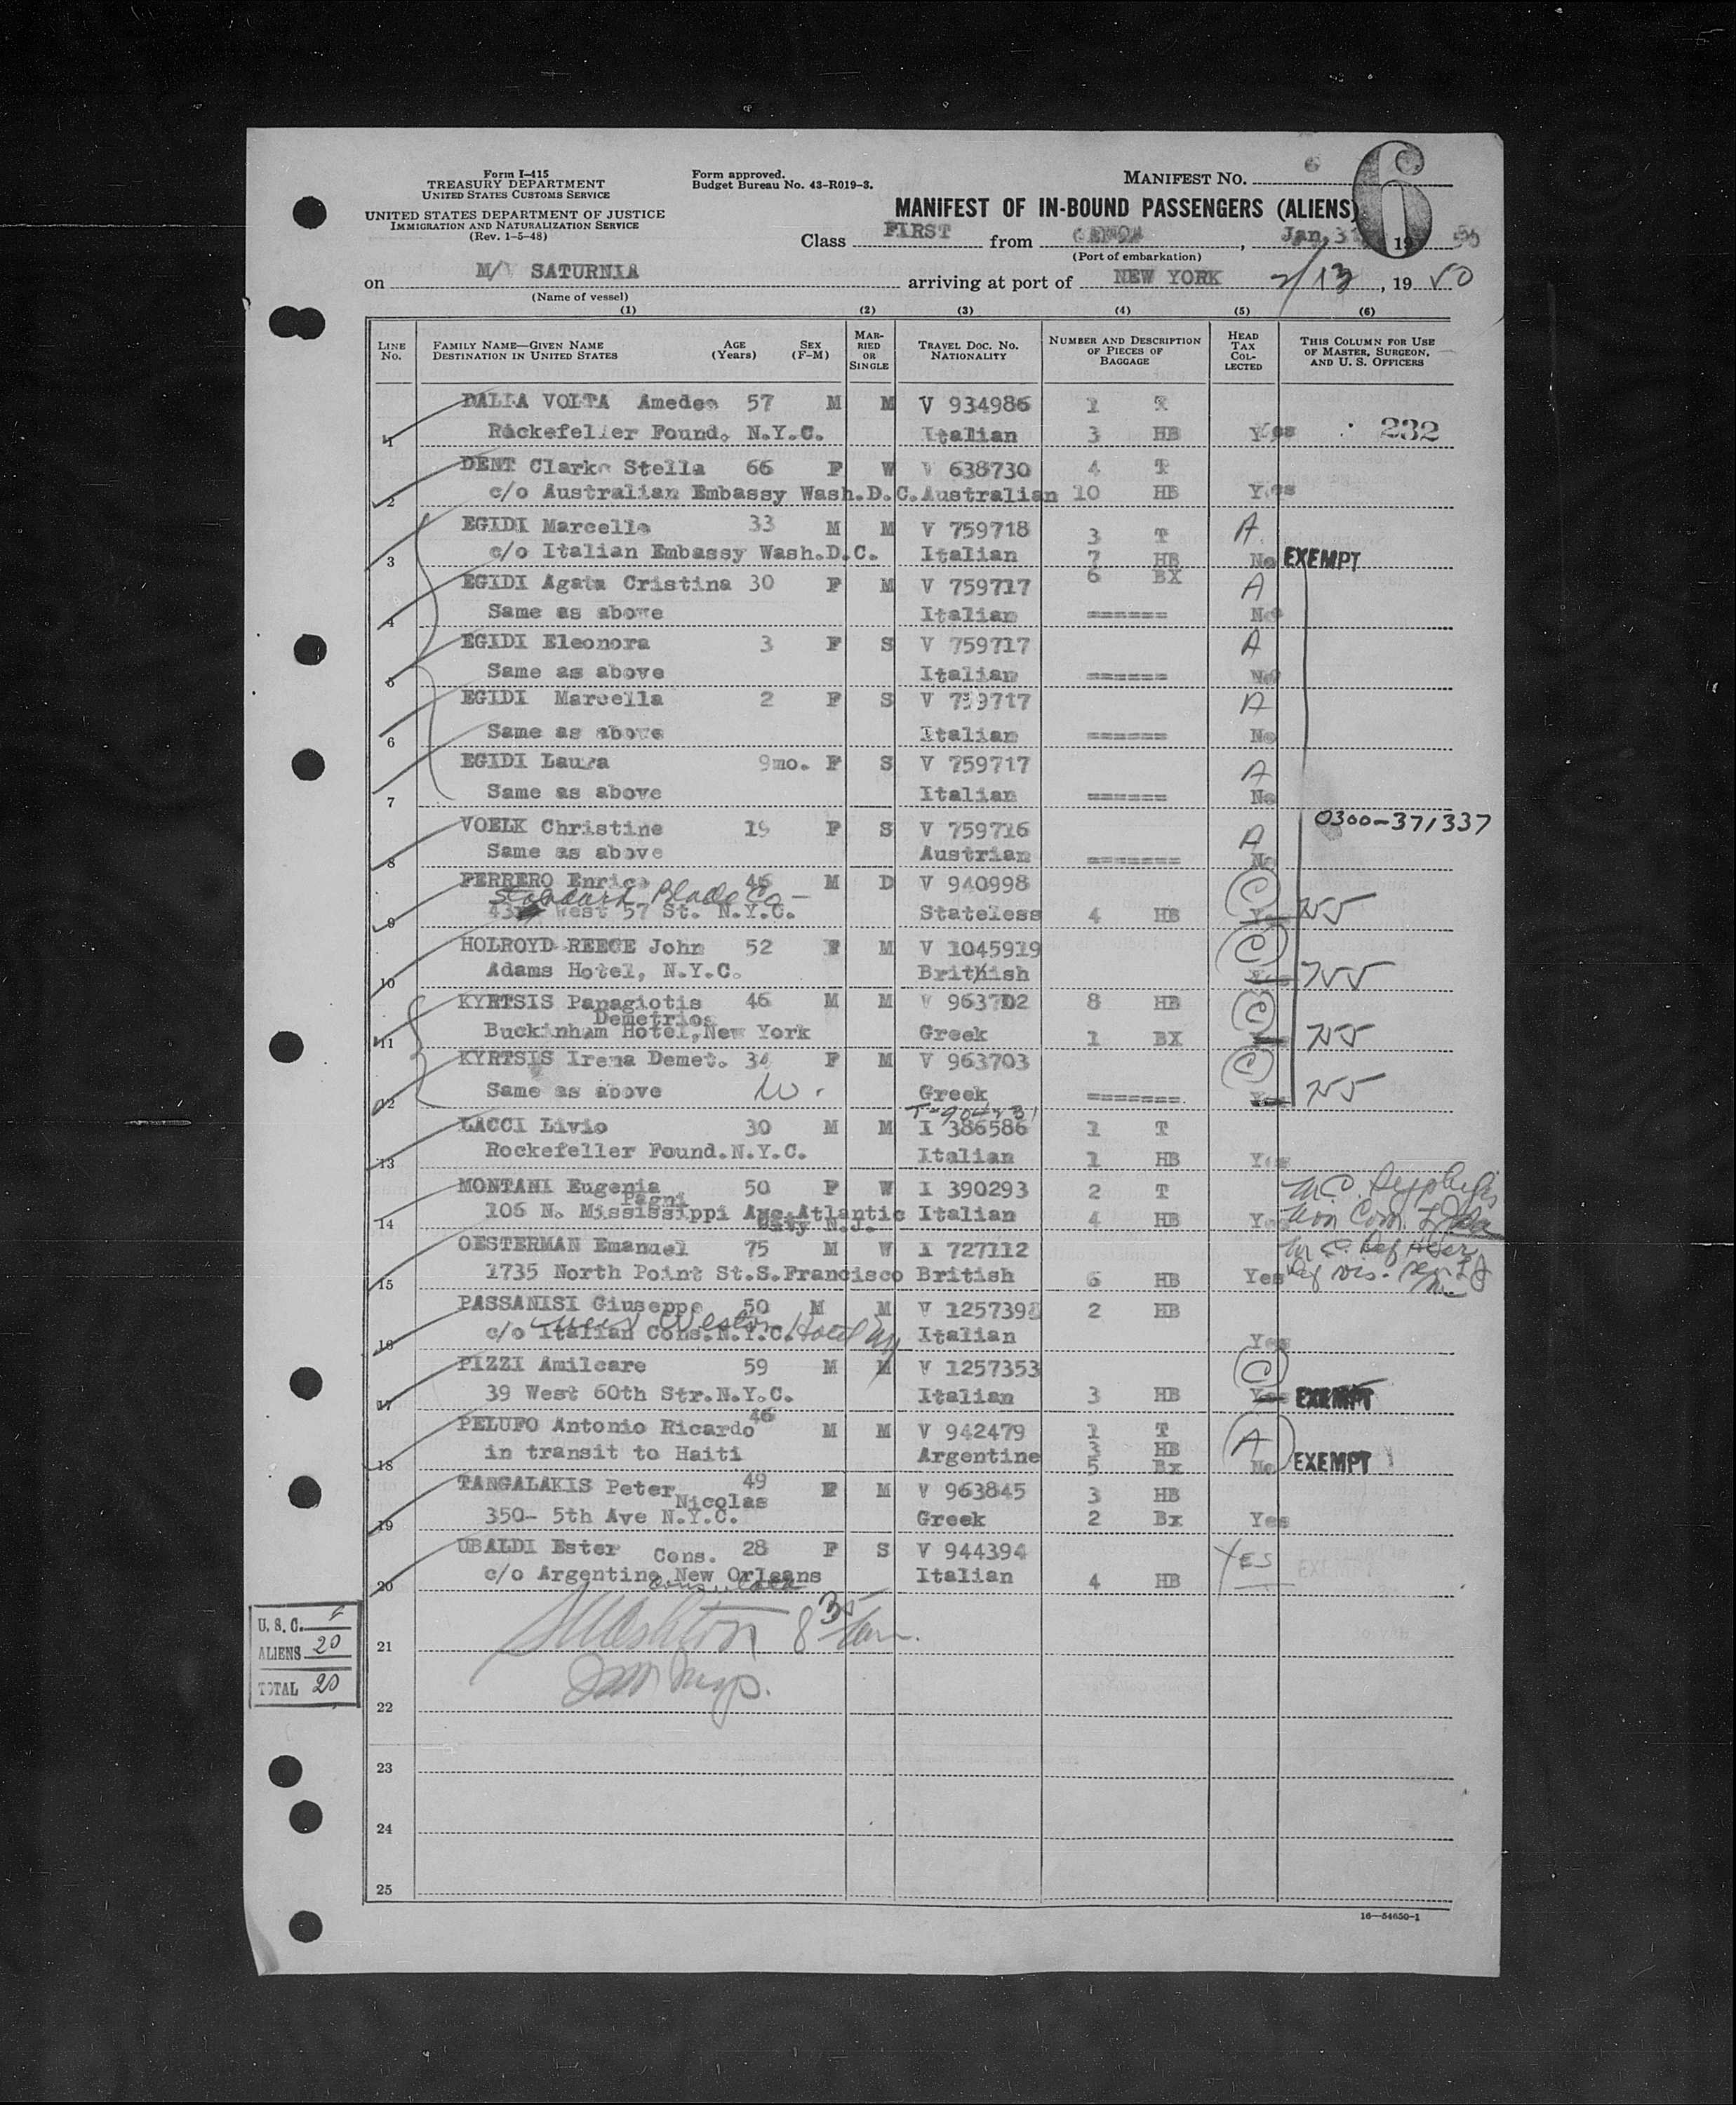 6
Form I-415
TREASURY DEPARTMENT
UNITED STATES CUSTOMS SERVICE
Form approved.
Budget Bureau No. 43-R019-3.
MANIFEST No. 6
UNITED STATES DEPARTMENT OF JUSTICE
IMMIGRATION AND NATURALIZATION SERVICE
(Rev. 1-5-48)
MANIFEST OF IN-BOUND PASSENGERS (ALIENS)
Class FIRST from GENOA, Jan. 31 19 50
(Port of embarkation)
on M/V SATURNIA arriving at port of NEW YORK 2/13, 19 50
(Name of vessel)
(1) (2) (3) (4) (5) (6)
LINE No. FAMILY NAME—GIVEN NAME DESTINATION IN UNITED STATES AGE (Years) SEX (F-M) MARRIED OR SINGLE TRAVEL DOC. NO. NATIONALITY NUMBER AND DESCRIPTION OF PIECES OF BAGGAGE HEAD TAX COLLECTED THIS COLUMN FOR USE OF MASTER, SURGEON, AND U. S. OFFICERS
DALLA VOLTA Amedeo 57 M M V 934986 1 T
1 Rockefeller Found. N.Y.C. Italian 3 HB Yes 232
DENT Clarke Stella 66 F W V 638730 4 T
2 c/o Australian Embassy Wash.D.C. Australian 10 HB Yes
EGIDI Marcello 33 M M V 759718 3 T A
3 c/o Italian Embassy Wash.D.C. Italian 7 HB No EXEMPT
6 BX
EGIDI Agata Cristina 30 F M V 759717 A
4 Same as above Italian ====== No
EGIDI Eleonora 3 F S V 759717 A
5 Same as above Italian ====== No
EGIDI Marcella 2 F S V 759717 A
6 Same as above Italian ====== No
EGIDI Laura 9mo. F S V 759717 A
7 Same as above Italian ====== No
VOELK Christine 19 F S V 759716 A 0300-37/337
8 Same as above Austrian ======= No
FERRERO Enrico 46 M D V 940998 C
Standard Blade Co —
9 West 57 St. N.Y.C. Stateless 4 HB Yes
HOLROYD-REECE John 52 M V 1045919 C
10 Adams Hotel, N.Y.C. British Yes
KYRTSIS Panagiotis 46 M M V 963702 8 HB C
Demetrios
11 Buckinham Hotel,New York Greek 1 BX
KYRTSIS Irena Demet. 34 F M V 963703 C
12 Same as above W. Greek =======
LACCI Livio 30 M M I 386586 1 T
13 Rockefeller Found.N.Y.C. Italian 1 HB Yes
MONTANI Eugenia 50 F W I 390293 2 T
Pagni
14 106 N. Mississippi Ave.Atlantic Italian 4 HB Yes
City N.J.
OESTERMAN Emanuel 75 M W I 727112
15 1735 North Point St.S.Francisco British 6 HB Yes
PASSANISI Giuseppe 50 M M V 1257398 2 HB
Weston Hotel
16 c/o Italian Cons.N.Y.C. Italian Yes
PIZZI Amilcare 59 M M V 1257353 C
17 39 West 60th Str.N.Y.C. Italian 3 HB Yes EXEMPT
PELUFO Antonio Ricardo 46 M M V 942479 1 T A
18 in transit to Haiti Argentine 3 HB No EXEMPT
5 Bx
TANGALAKIS Peter 49 M V 963845 3 HB
Nicolas
19 350- 5th Ave N.Y.C. Greek 2 Bx Yes
UBALDI Ester 28 F S V 944394 YES
Cons.
20 c/o Argentine New Orleans Italian 4 HB
U. S. C.
ALIENS 20
TOTAL 20
21
22
23
24
25
16—54650-1